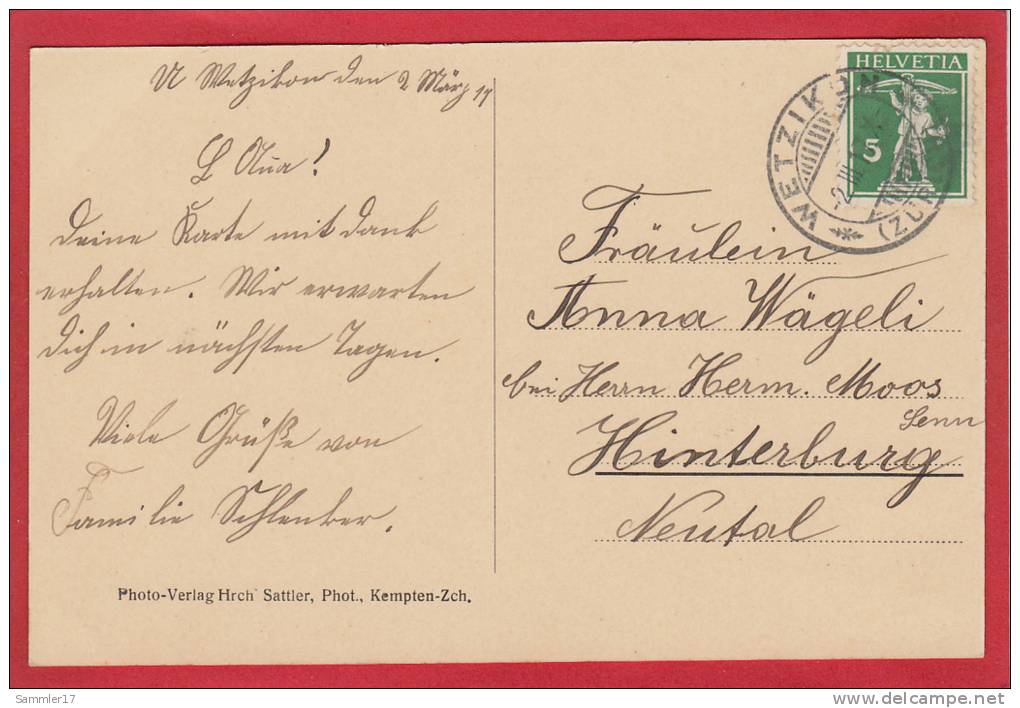 U Wetzikon den 2 März 17
L Anna!
Deine Karte mit Dank
erhalten. Wir erwarten
Dich in nächsten Tagen.
Viele Grüße von
Familie Schlenker.
Photo-Verlag Hrch Sattler, Phot., Kempten-Zch.
HELVETIA
5
WETZIKON
(ZÜR
-2.III.
Fräulein
Anna Wägeli
bei Herrn Herm. Moos
Senn
Hinterburg
Neutal
Sammler17
www.delcampe.net